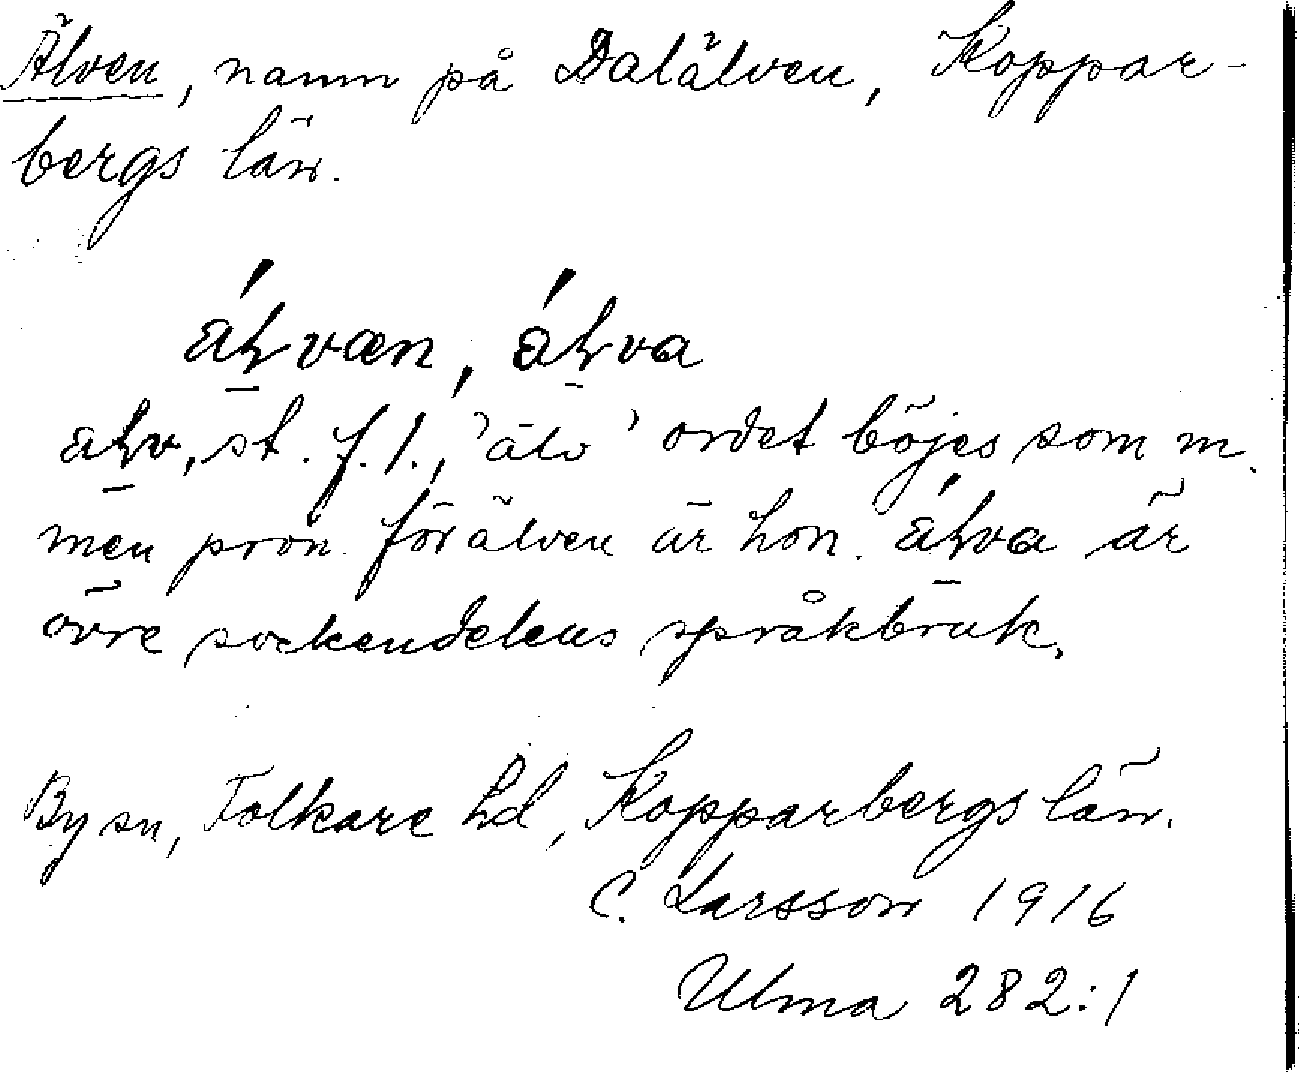 Älven, namn på Dalälven, Koppar-
bergs län.
ord böjes som m.
men pron. för älven är hon. är
övre sockendelens språkbruk.
By sn, Folkare hd, Kopparbergs län.
C. Larsson 1916
Ulma 282:1